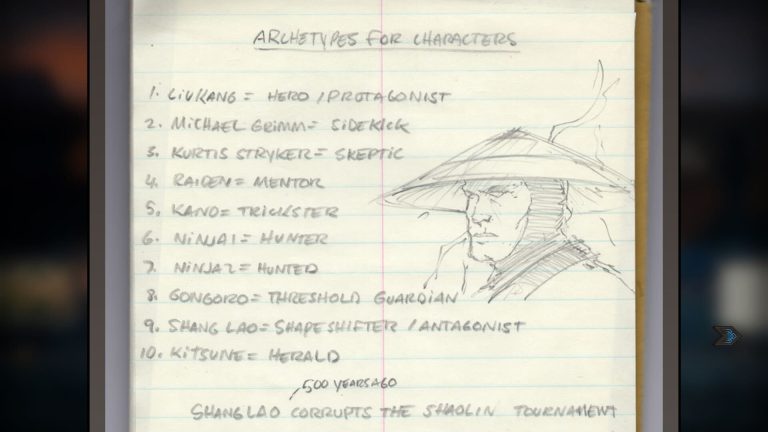 ARCHETYPES FOR CHARACTERS
1. LIU KANG = HERO / PROTAGONIST
2. MICHAEL GRIMM = SIDEKICK
3. KURTIS STRYKER = SKEPTIC
4. RAIDEN = MENTOR
5. KANO = TRICKSTER
6. NINJA1 = HUNTER
7. NINJA2 = HUNTED
8. GONGORO = THRESHOLD GUARDIAN
9. SHANG LAO = SHAPESHIFTER / ANTAGONIST
10. KITSUNE = HERALD
500 YEARS AGO
SHANG LAO CORRUPTS THE SHAOLIN TOURNAMENT